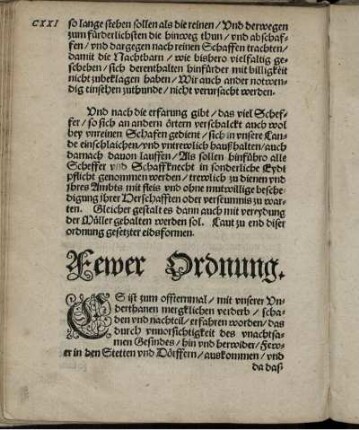 CXXI
so lange stehen sollen als die reinen / Vnd derwegen
zum fürderlichsten die hinweg thun / vnd abschaf-
fen / vnd dargegen nach reinen Schaffen trachten /
damit die Nachtbarn / wie bishero vielfaltig ge-
schehen / sich derenthalten hinfürder mit billigkeit
nicht zubeklagen haben / Wir auch ander notwen-
dig einsehen zuthunde / nicht verursacht werden.
Vnd nach die erfarung gibt / das viel Schef-
fer / so sich an andern örtern verschalckt auch wol
bey vnreinen Schafen gedient / sich in vnsere Lan-
de einschlaichen / vnd vntrewlich haußhalten / auch
darnach dauon lauffen / Als sollen hinführo alle
Scheffer vnd Schaffknecht in sonderliche Eydt
pflicht genommen werden / trewlich zu dienen vnd
jhres Ambts mit fleis vnd ohne mutwillige besche-
digung jhrer Herschafften oder verseumnis zu war-
ten. Gleicher gestalt es dann auch mit vereydung
der Müller gehalten werden sol. Laut zu end diser
ordnung gesetzter eidsformen.
Fewer Ordnung.
ES ist zum offternmal / mit vnserer Vn-
derthanen mergklichen verderb / scha-
den vnd nachteil / erfahren worden / das
durch vnuorsichtigkeit des vnachtsa-
men Gesindes / hin vnd herwider / Few-
er in den Stetten vnd Dörffern / auskommen / vnd
da daß